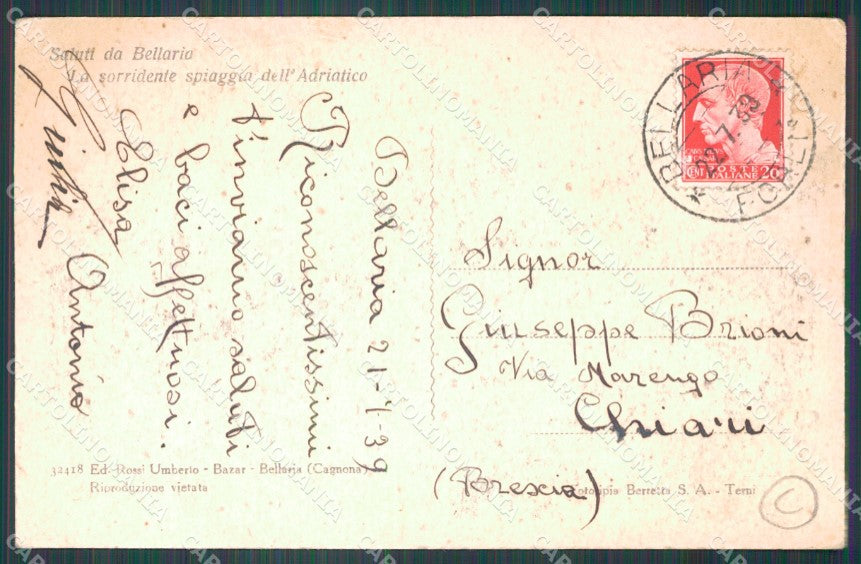 Saluti da Bellaria
La sorridente spiaggia dell'Adriatico
Bellaria 21-7-39
Riconoscentissimi
t'inviano saluti
e baci affettuosi.
Elisa
Antonio
BELLARIA
22.7.39
POSTE
ITALIANE
CENT 20
Signor
Giuseppe Brioni
Via Marengo
Chiari
(Brescia)
32418 Ed. Rossi Umberto - Bazar - Bellaria (Cagnona)
Riproduzione vietata
Fototipia Berretta S. A. - Terni
CARTOLINOMANIA